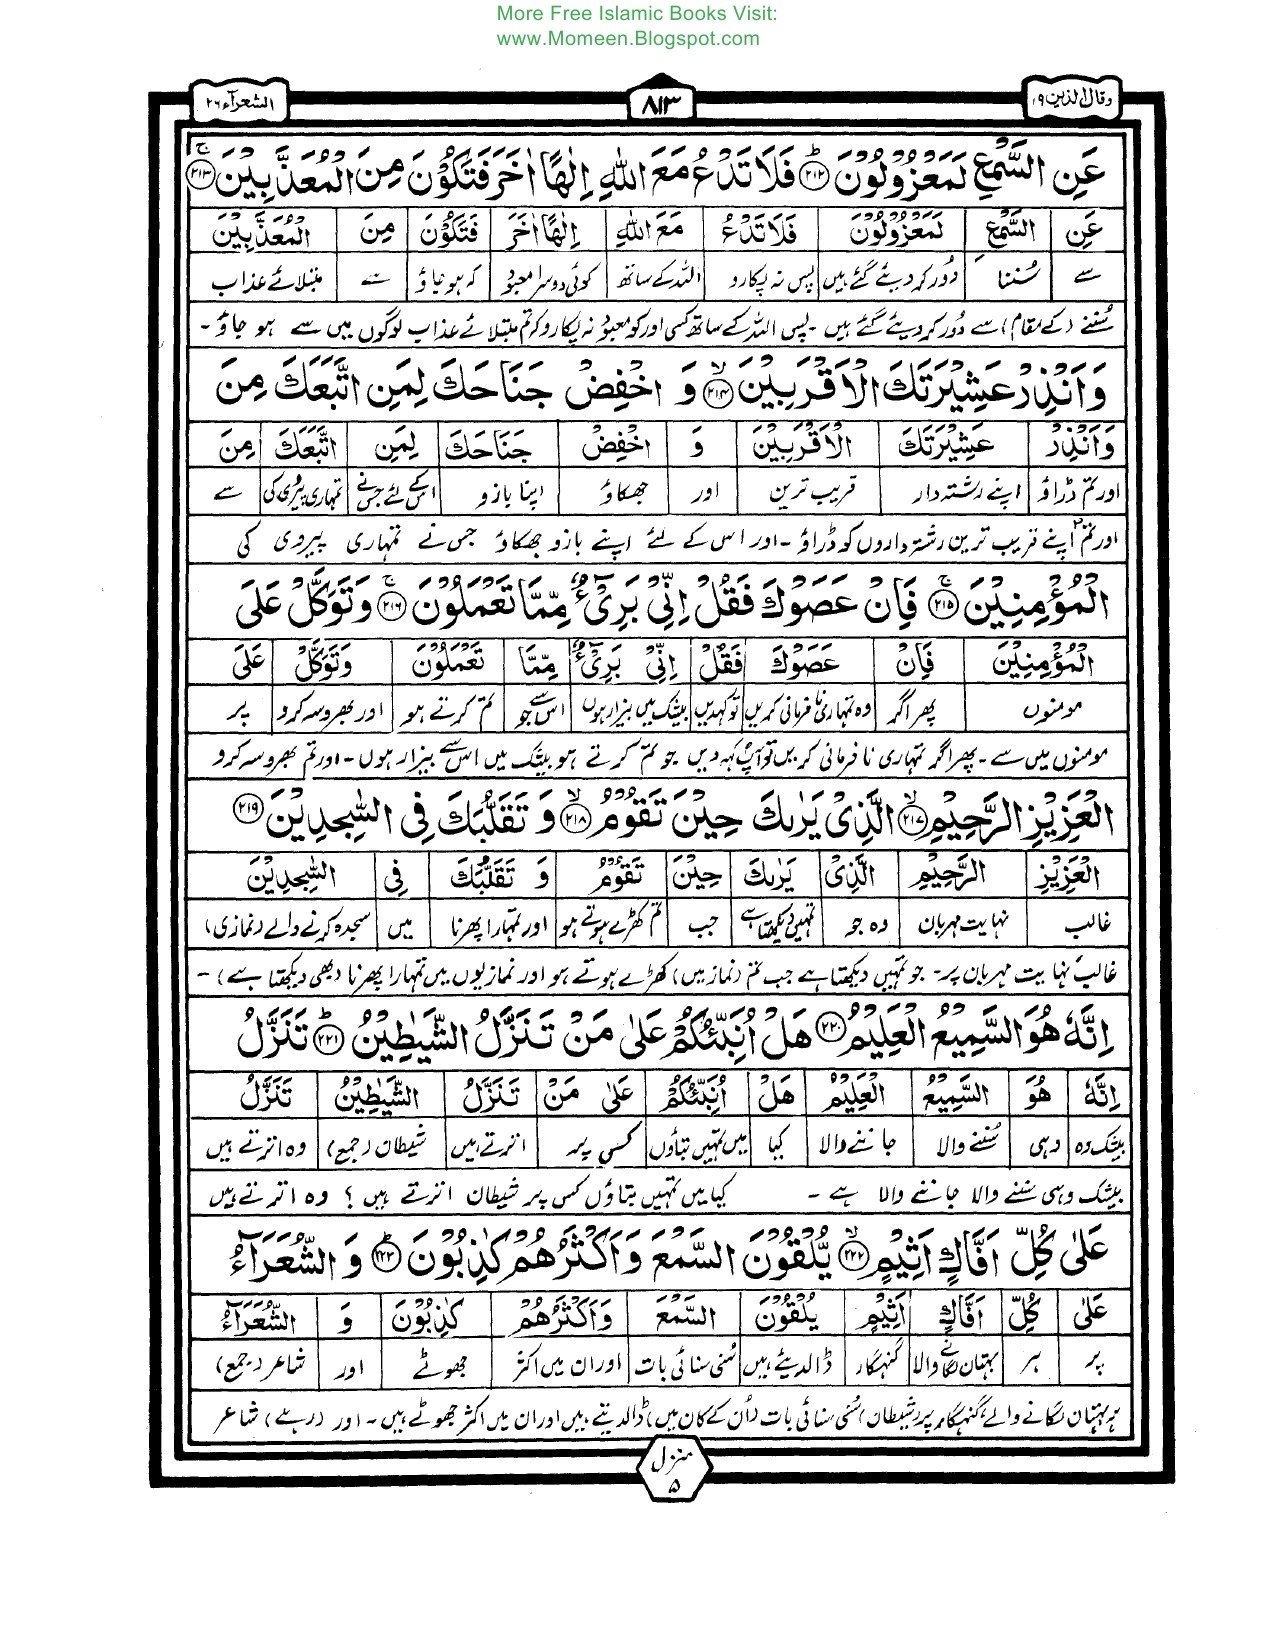 More Free Islamic Books Visit:
www.Momeen.Blogspot.com
وقال الذین ۱۹ ۸۱۳ الشعرآء ۲۶
عَنِ السَّمْعِ لَمَعْزُوْلُوْنَ ﴿۲۱۲﴾ؕ فَلَا تَدْعُ مَعَ اللّٰهِ اِلٰهًا اٰخَرَ فَتَكُوْنَ مِنَ الْمُعَذَّبِیْنَ ﴿۲۱۳﴾ۚ
عَنِ السَّمْعِ لَمَعْزُوْلُوْنَ فَلَا تَدْعُ مَعَ اللّٰهِ اِلٰهًا اٰخَرَ فَتَكُوْنَ مِنَ الْمُعَذَّبِیْنَ
سے سُننا دُور کردیئے گئے ہیں پس نہ پکارو اللہ کے ساتھ کوئی دوسرا معبود کہ ہو جاؤ سے مبتلائے عذاب
سُننے (کے مقام) سے دُور کردیئے گئے ہیں ۔ پس اللہ کے ساتھ کسی اور کو معبود نہ پکارو کہ تم مبتلائے عذاب لوگوں میں سے ہو جاؤ ۔
وَاَنْذِرْ عَشِیْرَتَكَ الْاَقْرَبِیْنَ ﴿۲۱۴﴾ۙ وَ اخْفِضْ جَنَاحَكَ لِمَنِ اتَّبَعَكَ مِنَ
وَاَنْذِرْ عَشِیْرَتَكَ الْاَقْرَبِیْنَ وَ اخْفِضْ جَنَاحَكَ لِمَنِ اتَّبَعَكَ مِنَ
اور تم ڈراؤ اپنے رشتہ دار قریب ترین اور جھکاؤ اپنا بازو اس کے لئے جس نے تمہاری پیروی کی سے
اور تم اپنے قریب ترین رشتہ داروں کو ڈراؤ ۔ اور اس کے لئے اپنے بازو جھکاؤ جس نے تمہاری پیروی کی
الْمُؤْمِنِیْنَ ﴿۲۱۵﴾ۚ فَاِنْ عَصَوْكَ فَقُلْ اِنِّیْ بَرِیْٓءٌ مِّمَّا تَعْمَلُوْنَ ﴿۲۱۶﴾ۚ وَتَوَكَّلْ عَلَی
الْمُؤْمِنِیْنَ فَاِنْ عَصَوْكَ فَقُلْ اِنِّیْ بَرِیْٓءٌ مِّمَّا تَعْمَلُوْنَ وَتَوَكَّلْ عَلَی
مومنوں پھر اگر وہ تمہاری نافرمانی کریں تو کہدیں بیشک میں بیزار ہوں اس سے جو تم کرتے ہو اور بھروسہ کرو پر
مومنوں میں سے ۔ پھر اگر تمہاری نافرمانی کریں تو آپ کہہ دیں جو تم کرتے ہو بیشک میں اس سے بیزار ہوں ۔ اور تم بھروسہ کرو
الْعَزِیْزِ الرَّحِیْمِ ﴿۲۱۷﴾ۙ الَّذِیْ یَرٰىكَ حِیْنَ تَقُوْمُ ﴿۲۱۸﴾ۙ وَ تَقَلُّبَكَ فِی السّٰجِدِیْنَ ﴿۲۱۹﴾
الْعَزِیْزِ الرَّحِیْمِ الَّذِیْ یَرٰىكَ حِیْنَ تَقُوْمُ وَ تَقَلُّبَكَ فِی السّٰجِدِیْنَ
غالب نہایت مہربان وہ جو تمہیں دیکھتا ہے جب تم کھڑے ہوتے ہو اور تمہارا پھرنا میں سجدہ کرنے والے (نمازی)
غالب نہایت مہربان پر ۔ جو تمہیں دیکھتا ہے جب تم (نماز میں) کھڑے ہوتے ہو اور نمازیوں میں تمہارا پھرنا (بھی دیکھتا ہے) ۔
اِنَّهٗ هُوَ السَّمِیْعُ الْعَلِیْمُ ﴿۲۲۰﴾ هَلْ اُنَبِّئُكُمْ عَلٰی مَنْ تَنَزَّلُ الشَّیٰطِیْنُ ﴿۲۲۱﴾ؕ تَنَزَّلُ
اِنَّهٗ هُوَ السَّمِیْعُ الْعَلِیْمُ هَلْ اُنَبِّئُكُمْ عَلٰی مَنْ تَنَزَّلُ الشَّیٰطِیْنُ تَنَزَّلُ
بیشک وہ وہی سُننے والا جاننے والا کیا میں تمہیں بتاؤں کسی پر اترتے ہیں شیطان (جمع) وہ اترتے ہیں
بیشک وہی سننے والا جاننے والا ہے ۔ کیا میں تمہیں بتاؤں کس پر شیطان اترتے ہیں ؟ وہ اترتے ہیں
عَلٰی كُلِّ اَفَّاكٍ اَثِیْمٍ ﴿۲۲۲﴾ۙ یُّلْقُوْنَ السَّمْعَ وَ اَكْثَرُهُمْ كٰذِبُوْنَ ﴿۲۲۳﴾ؕ وَ الشُّعَرَآءُ
عَلٰی كُلِّ اَفَّاكٍ اَثِیْمٍ یُلْقُوْنَ السَّمْعَ وَاَكْثَرُهُمْ كٰذِبُوْنَ وَ الشُّعَرَآءُ
پر ہر بہتان لگانے والا گنہگار ڈالدیتے ہیں سُنی سنائی بات اور ان میں اکثر جھوٹے اور شاعر (جمع)
ہر بہتان لگانے والے گنہگار پر (شیطان) سُنی سنائی بات (اُن کے کان میں) ڈالدیتے ہیں اور ان میں اکثر جھوٹے ہیں ۔ اور (رہے) شاعر
منزل
۵